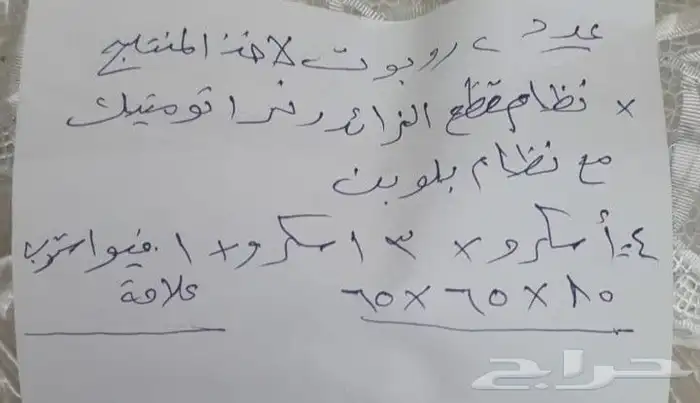 عدد ٢ روبوت لاخذ المنتج
× نظام قطع الزائد اتومتيك
مع نظام بلوبن
٤ أسكرو × ٣ اسكرو + ١ فيو استرب
٨٥ × ٦٥ × ٦٥ علامة
حراج